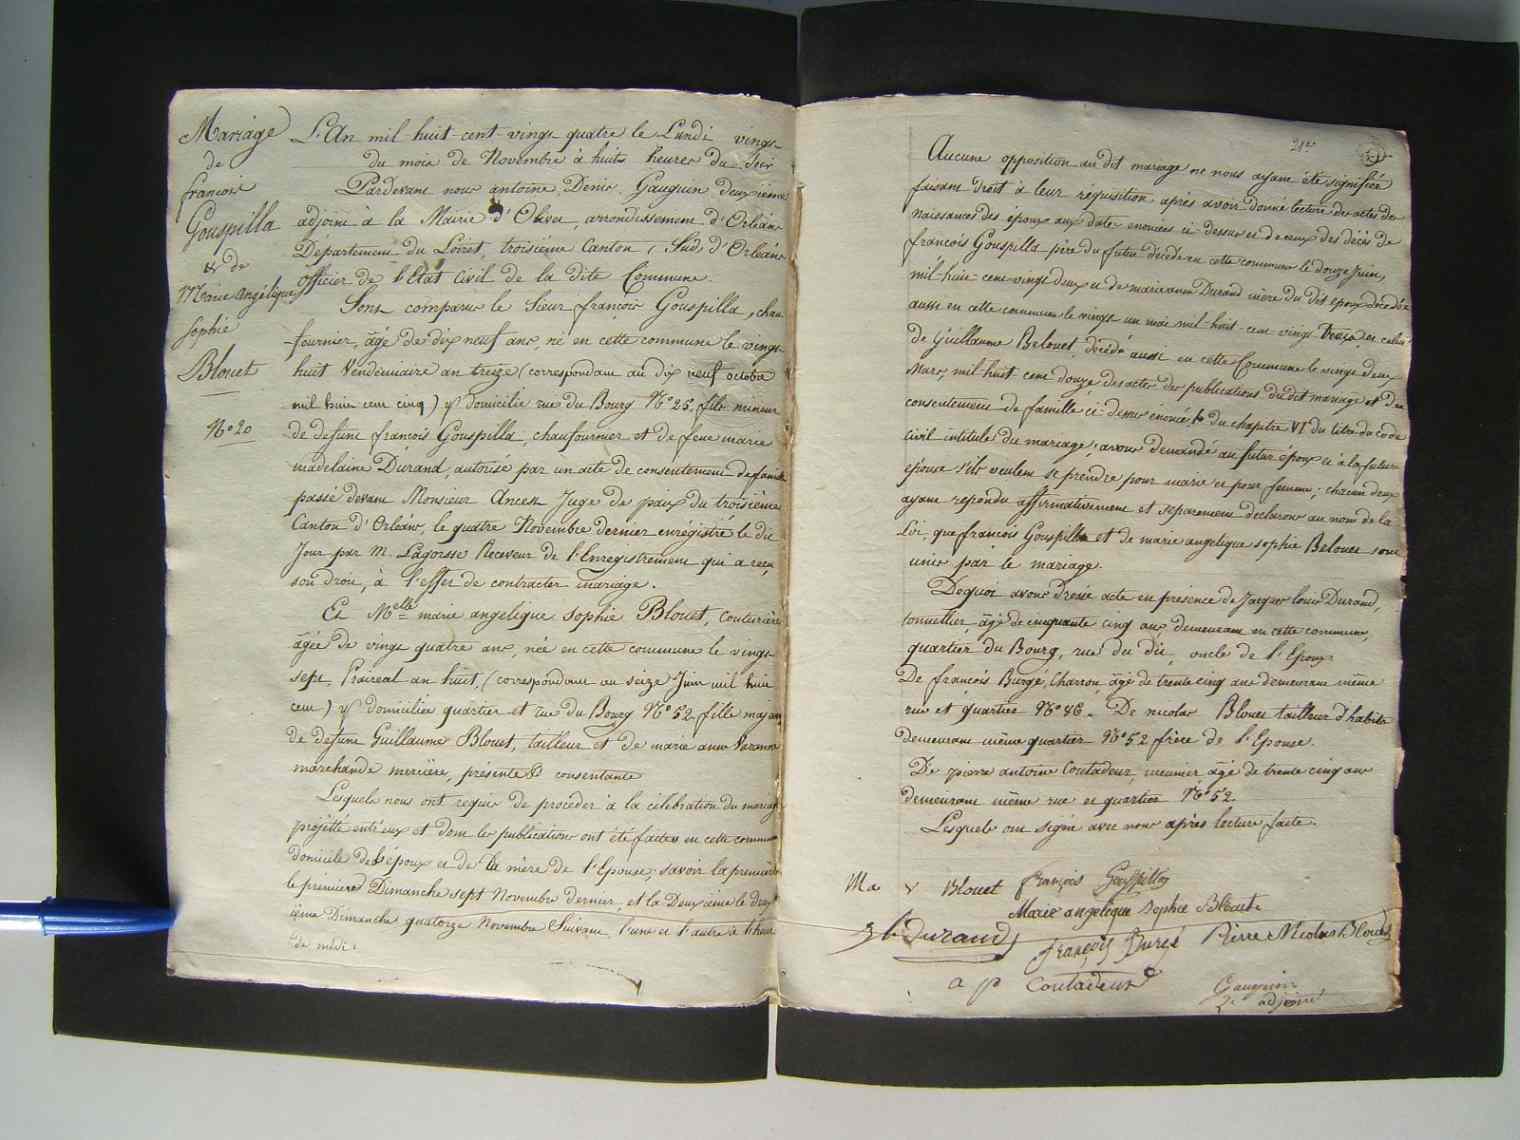 Mariage
de
françois
Gouspilla
& de
Marie Angélique
Sophie
Blouet
N.º 20
L'An mil huit-cent-vingt quatre le Lundi vingt-
du mois de Novembre à huit heures du Soir
Pardevant nous antoine Denis Gauguin deuxième
adjoint à la Mairie d'Olivet, arrondissement d'Orléans
Département du Loiret, troisième Canton (Sud) d'Orléans
officier de l'Etat Civil de la dite Commune.
Sont comparus le Sieur françois Gouspilla, chau
fournier, âgé de dix neuf ans, né en cette commune le vingt-
huit Vendémiaire an treize (correspondant au dix neuf octobre
mil huit cent cinq) y domicilié rue du Bourg N.º 25, fils mineur
de defunt françois Gouspilla, chaufournier et de feue marie
madelaine Durand, autorisé par un acte de consentement de famille
passé devant Monsieur Ancest Juge de paix du troisième
Canton d'Orléans, le quatre Novembre dernier enrégistré le dit
Jour par M. Lagorsse Receveur de l'Enregistrement qui a reçu
son droit, à l'effet de contracter mariage.
Et Melle marie angelique sophie Blouet, couturière
âgée de vingt quatre ans, née en cette commune le vingt
sept Prairéal an huit, (correspondant au seize Juin mil huit
cent) y domiciliée quartier et rue du Bourg N.º 52 fille majeure
de defunt Guillaume Blouet, tailleur et de marie anne
marchande mercière, présente & consentante
Lesquels nous ont requis de procéder à la célébration du mariage
projetté entr'eux et dont les publications ont été faites en cette commune
domicile de l'époux et de la mère de l'Epouse; savoir la première
le premiere Dimanche sept Novembre dernier, et la Deuxième le deux
ième Dimanche quatorze Novembre Suivant, l'une et l'autre à l'heure
de midi.
Aucune opposition au dit mariage ne nous ayant été signifiée
faisant droit à leur réquisition après avoir donné lecture des actes de
naissances des époux aux dates énoncées ci-dessus et de ceux des décès de
françois Gouspilla père du futur décédé en cette commune le douze Juin,
mil-huit-cent-vingt deux et de marie anne Durand mère du dit époux décédée
aussi en cette commune le vingt un mai mil-huit-cent vingt treize de celui
de Guillaume Belouet, décédé aussi en cette Commune le vingt deux
Mars, mil-huit-cent douze des actes des publications du dit mariage et du
consentement de famille ci-dessus énoncé & du chapitre VI du titre du code
civil intitulé du mariage; avons demandé au futur époux et à la future
épouse s'ils veulent se prendre, pour mari et pour femme; chacun d'eux
ayant repondu affirmativement et séparément déclarons au nom de la
Loi, que françois Gouspilla et de marie angelique sophie Belouet sont
unis par le mariage.
Dequoi avons dressé acte en présence de Jacques louis Durand,
tonnellier, âgé de cinquante cinq ans, demeurant en cette commune,
quartier du Bourg, rue du dit, oncle de l'Epoux
De françois Burgé, Charron, âgé de trente cinq ans demeurant même
rue et quartier N.º 46. De nicolas Blouet tailleur d'habits
demeurant même quartier N.º 52 frère de l'Epouse.
De pierre antoine Coutadeur, meunier, âgé de trente cinq ans
demeurant même rue et quartier N.º 52.
Lesquels ont signé avec nous après lecture faite.
Ma v Blouet françois Gouspilla
Marie angelique Sophie Blouet
J l Durand françois Burgé Pierre Nicolas Blouet
a p Coutadeur
Gauguin
2e adjoint